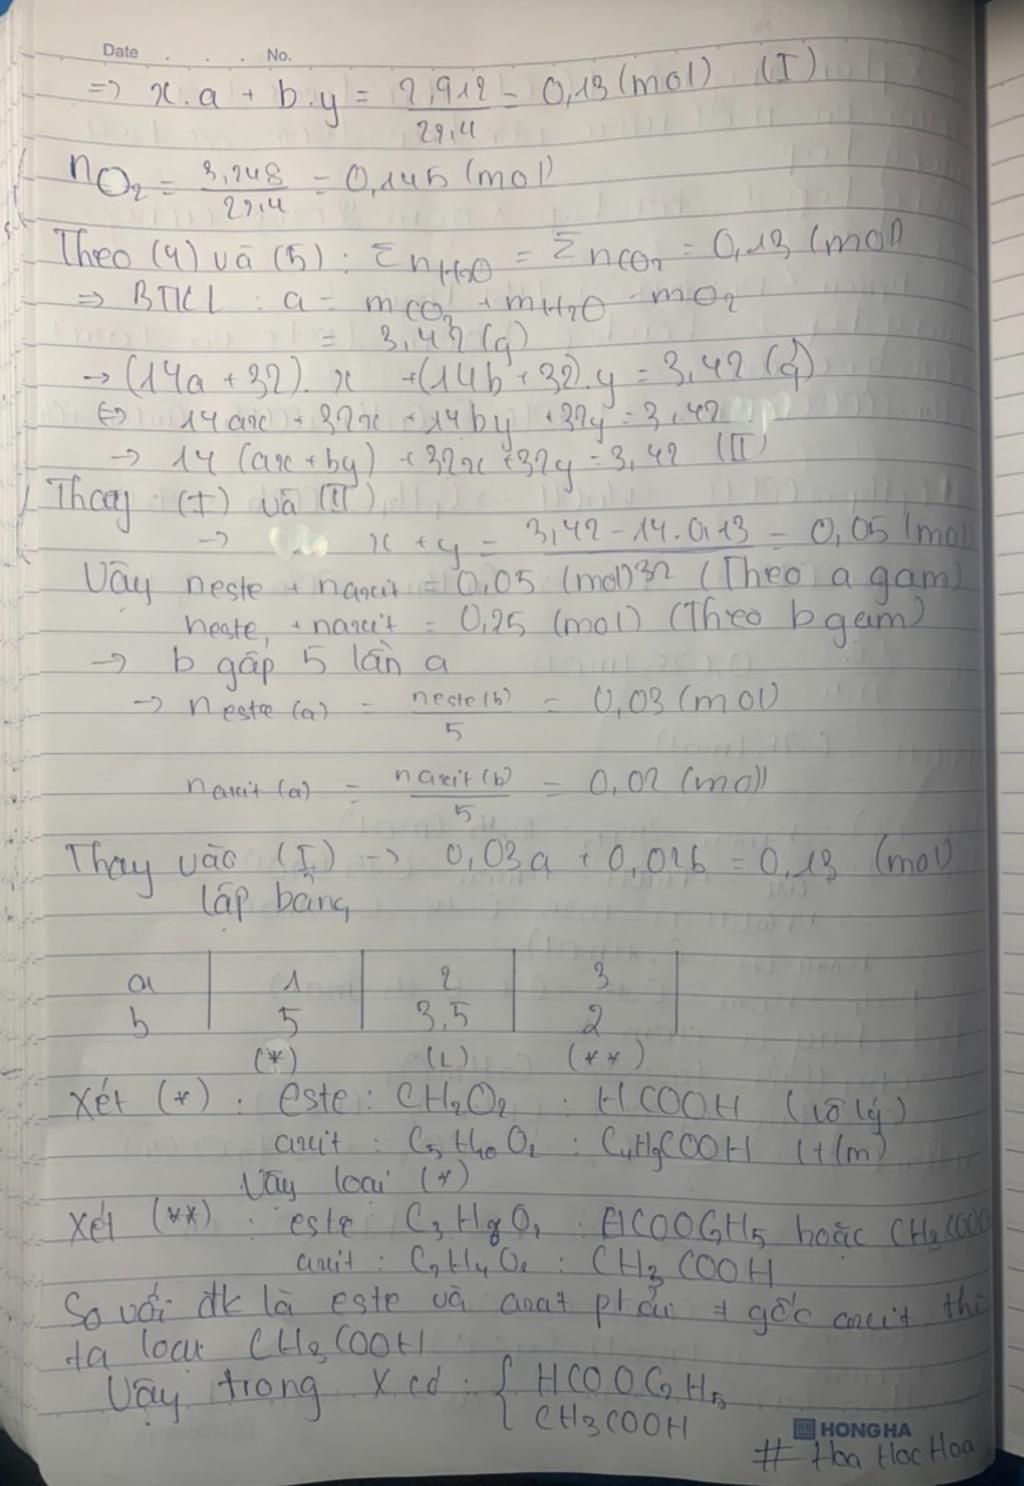 Date . . . . No.
=> x.a + b.y = 2,912/22,4 = 0,13 (mol) (I)
nO2 = 3,248/22,4 = 0,145 (mol)
Theo (4) và (5) : ΣnH2O = ΣnCO2 = 0,13 (mol)
=> BTKL : a = mCO2 + mH2O - mO2
= 3,42 (g)
-> (14a + 32). x + (14b + 32).y = 3,42 (g)
<=> 14ax + 32x + 14by + 32y = 3,42
-> 14 (ax + by) + 32x + 32y = 3,42 (II)
Thay (I) và (II)
-> x + y = (3,42 - 14.0,13)/32 = 0,05 (mol)
Vậy neste + naxit = 0,05 (mol) (Theo a gam)
neste, + naxit = 0,25 (mol) (Theo b gam)
-> b gấp 5 lần a
-> neste (a) = neste(b)/5 = 0,03 (mol)
naxit (a) = naxit (b)/5 = 0,02 (mol)
Thay vào (I) -> 0,03a + 0,02b = 0,13 (mol)
lập bảng
a | 1 | 2 | 3
b | 5 | 3,5 | 2
(*) (L) (**)
Xét (*) : este : CH2O2 : HCOOH (vô lý)
axit : C5H10O2 : C4H9COOH (t/m)
Vậy loại (*)
Xét (**) : este : C3H8O2 : HCOOC2H5 hoặc CH3COO
axit : C2H4O2 : CH3COOH
So với đk là este và axit phải ≠ gốc axit thì
ta loại CH3COOH
Vậy trong X có : { HCOOC2H5
CH3COOH
HONG HA
# Hoa Hoc Hoa